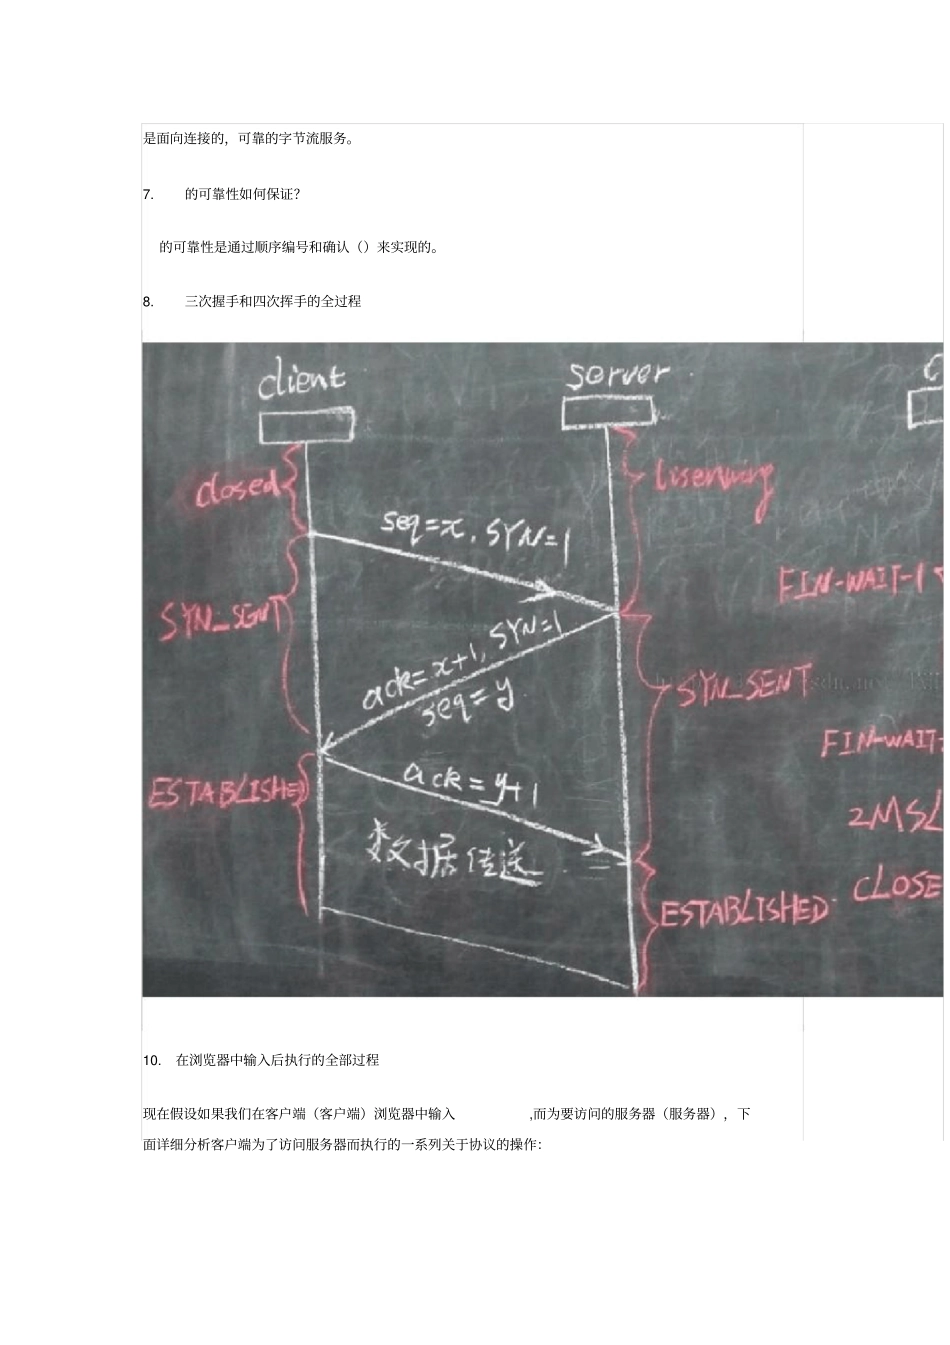 是面向连接的，可靠的字节流服务。
7. 的可靠性如何保证？
的可靠性是通过顺序编号和确认（）来实现的。
8. 三次握手和四次挥手的全过程
client
server
closed
lisenwing
seq=x, SYN=1
FIN-WAIT-1
SYN_SENT
ack=x+1, SYN=1
seq=y
SYN_SENT
FIN-WAIT-
ack=y+1
ESTABLISHED
2MSL
数据传送
CLOSE
ESTABLISHED
10. 在浏览器中输入后执行的全部过程
现在假设如果我们在客户端（客户端）浏览器中输入 ,而为要访问的服务器（服务器），下
面详细分析客户端为了访问服务器而执行的一系列关于协议的操作：